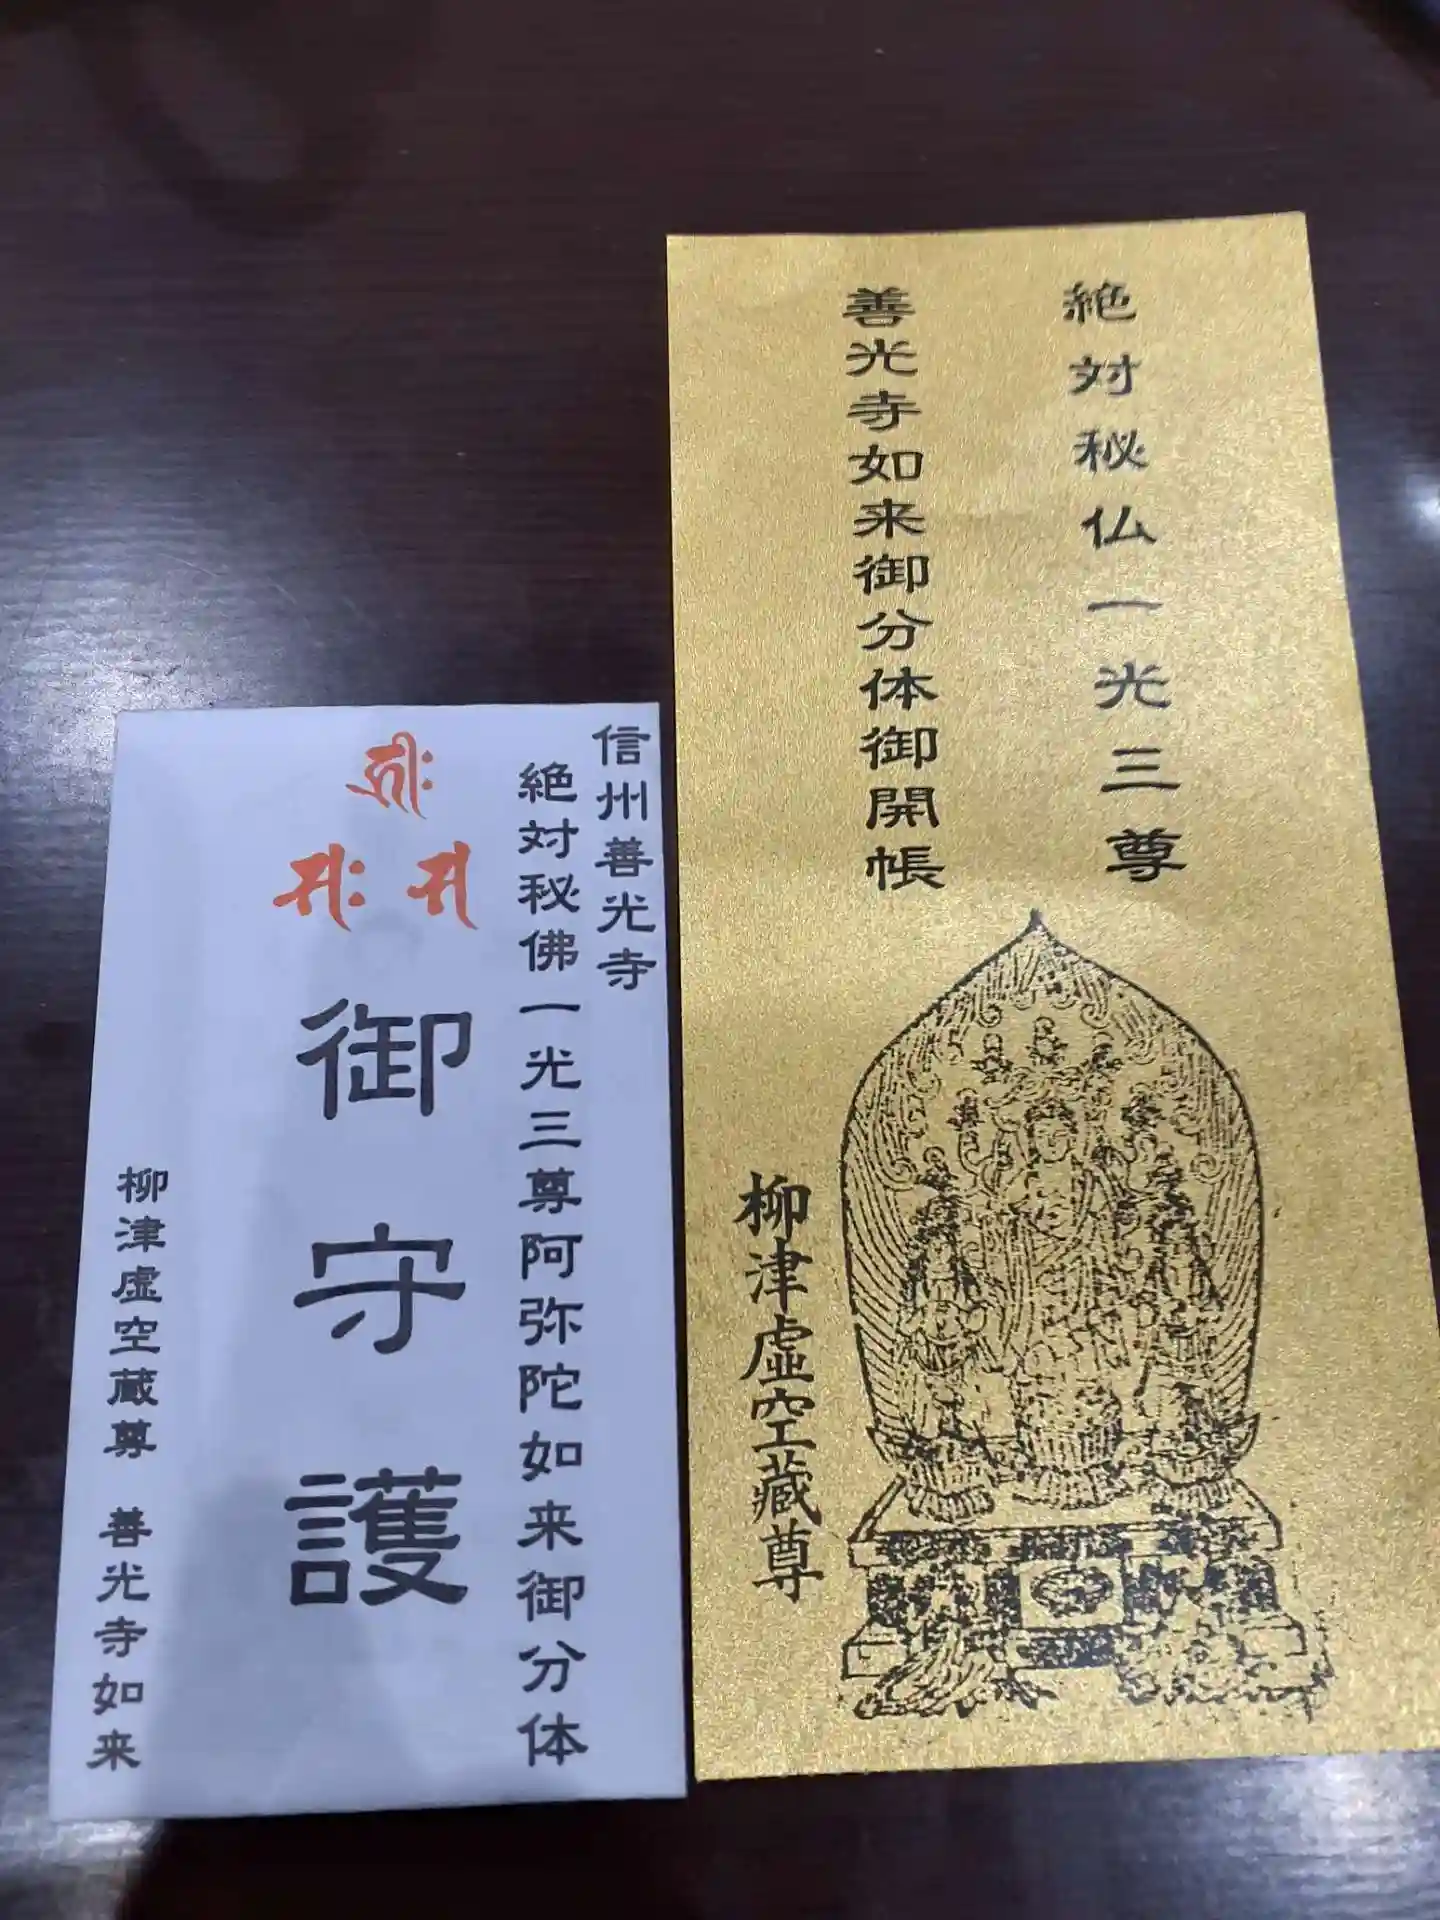 信州善光寺
絶対秘佛一光三尊阿弥陀如来御分体
御守護
柳津虚空蔵尊 善光寺如来
絶対秘仏一光三尊
善光寺如来御分体御開帳
柳津虚空藏尊